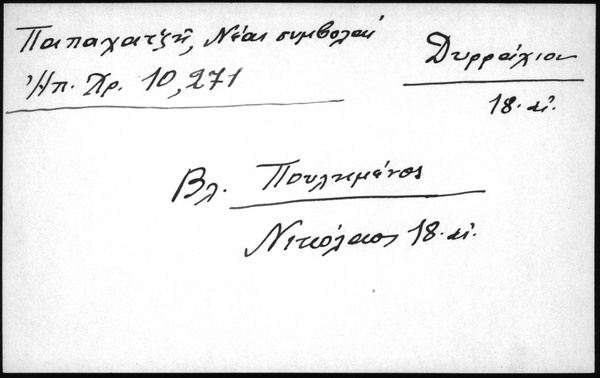 Παπαχατζῆ, Νέαι συμβολαί
Ἠπ. Χρ. 10, 271
Δυρράχιον
18. αἰ.
Βλ. Πουλημένος
Νικόλαος 18. αἰ.